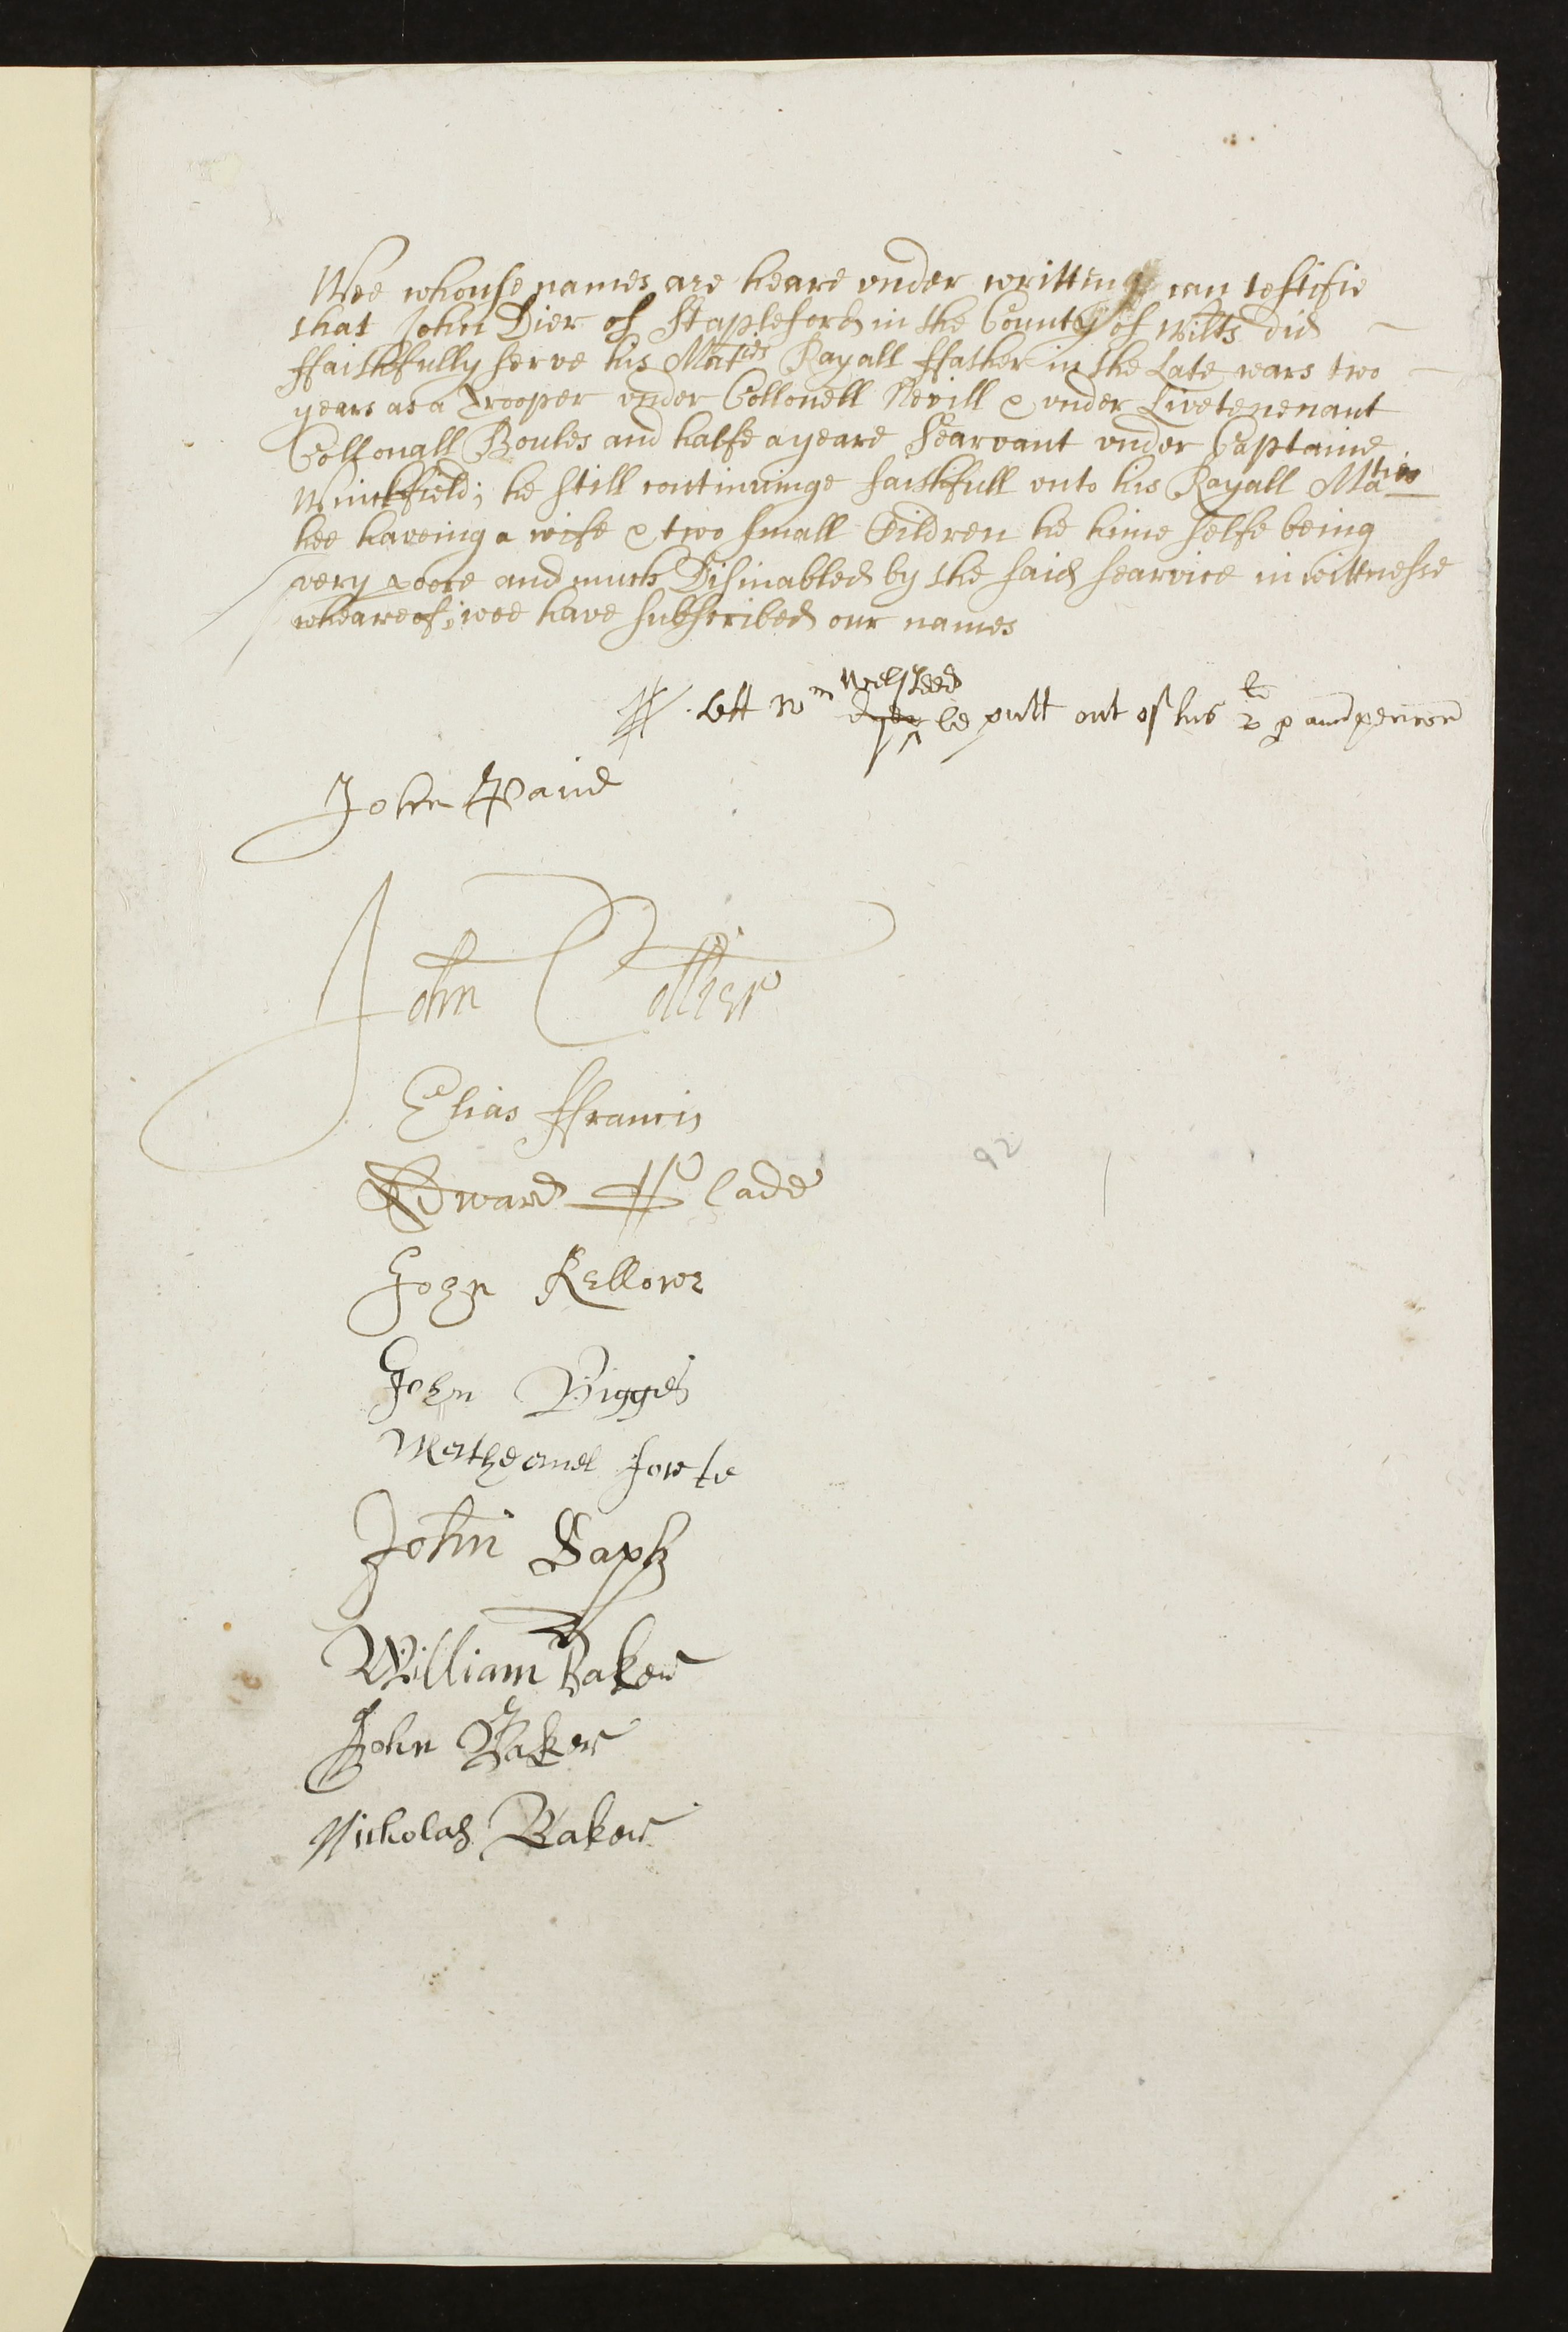 Wee whouse names are heare vnder writting can testifie
that John Dier of Stapleford in the County of Wilts did
ffaithfully serve his Maties Rayall ffather in the Late wars two
years as a Trooper vnder Collonell Nevill & vnder Livetenenant
Collonall Boules and halfe a yeare Searvant vnder Captaine
Winckfield; he still continuinge faithfull vnto his Rayall Matie
hee haveing a wife & two small Cildren he hime selfe being
very poore and much Disinabled by the said searvice in wittnesse
wheareof; wee have subscribed our names
Welsteed
Lett Wm dyer be putt out of his 2li p annpencon
John Paine
John Collier
Elias ffrancis
Edward Slade
John Kellowe
John Bigges
John Saph
William Baker
John Baker
Nicholas Baker
92